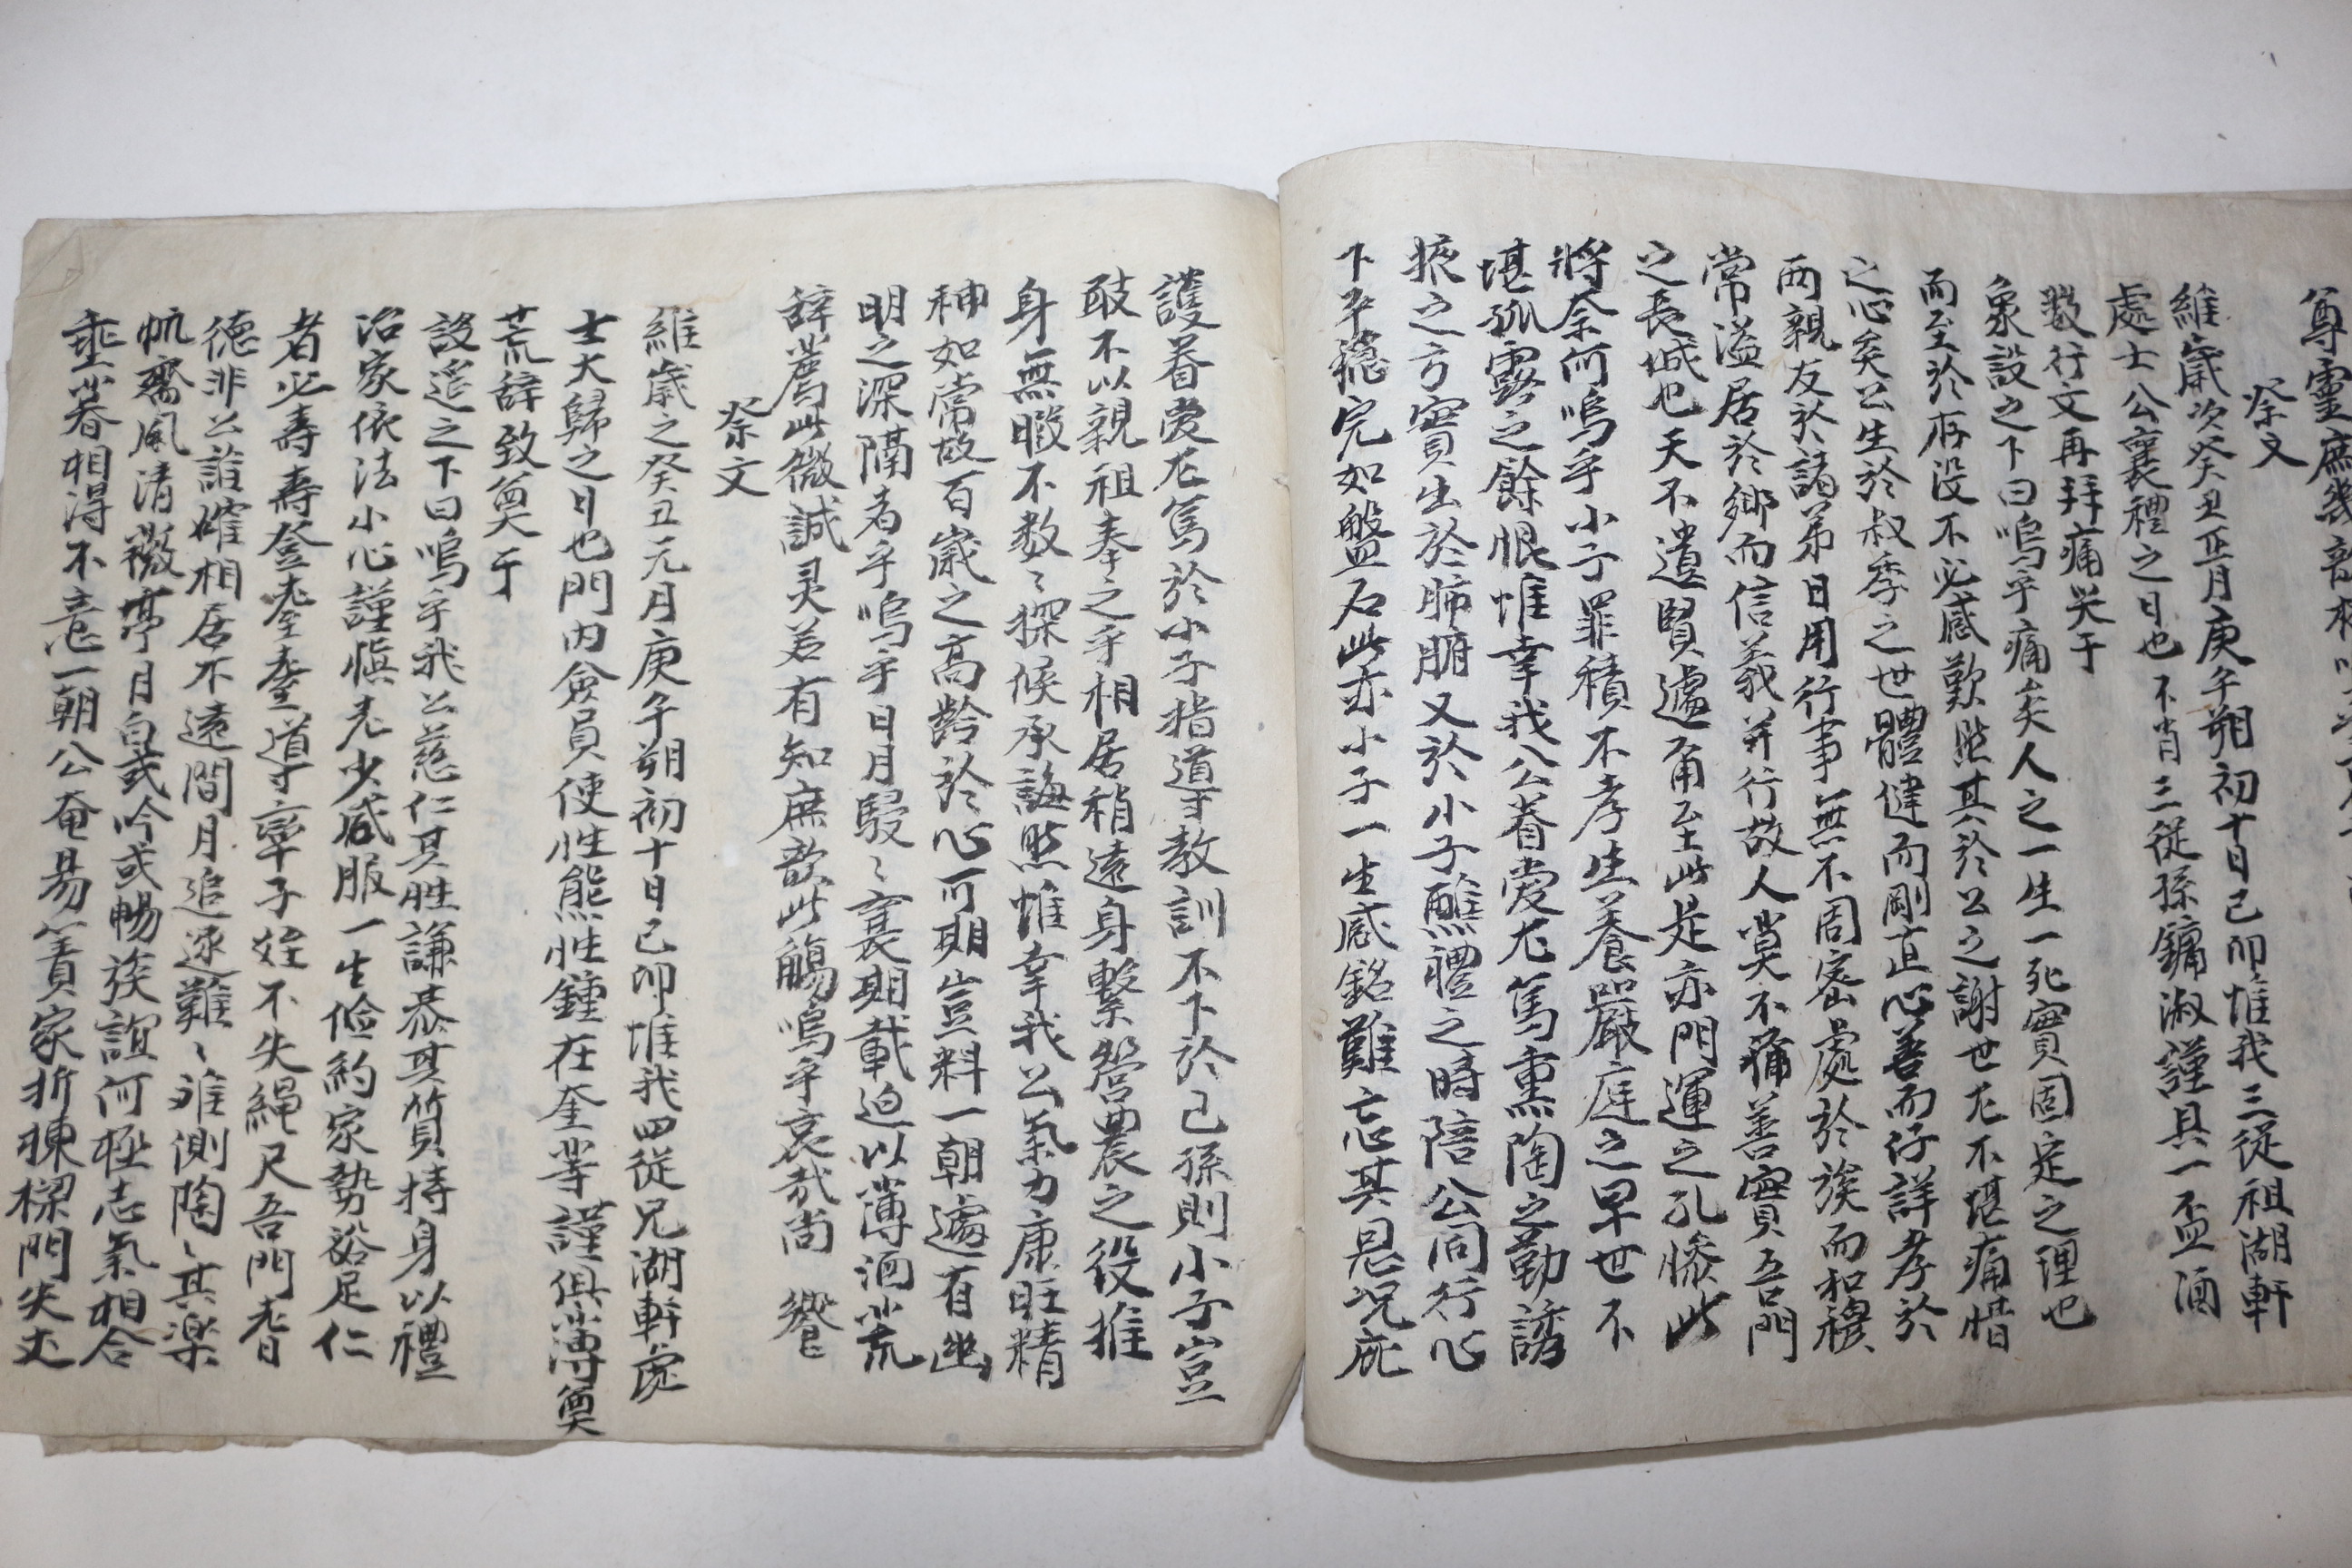 尊靈庶幾
祭文
維歲次癸丑正月庚午朔初十日己卯惟我三從祖湖軒
處士公襄禮之日也不肖三從孫鏞淑謹具一盃酒
數行文再拜痛哭于
象設之下曰嗚乎痛矣人之一生一死實固定之理也
而至於存没不必感歎然其於公之謝世尤不堪痛惜
之心矣公生於叔季之世體健而剛直心善而仔詳孝於
兩親友於諸弟日用行事無不周密處於族而和穆
常溢居於鄉而信義并行故人莫不稱善實吾門
之長城也天不遺賢遽爾至此是亦門運之孔慘此
將奈何嗚乎小子罪積不孝生養嚴庭之早世不
堪孤露之餘恨惟幸我公眷愛尤篤熏陶之勤誘
掖之方實出於肺腑又於小子醮禮之時陪公同行心
下平穩完如盤石此亦小子一生感銘難忘其恩况庇
護眷愛尤篤於小子指導教訓不下於己孫則小子豈
敢不以親祖奉之乎相居稍遠身繫營農之役推
身無暇不数〻探候承誨然惟幸我公氣力康旺精
神如常故百歲之高齡於心可期豈料一朝遽有幽
明之深隔者乎嗚乎日月駸〻襄期載迫以薄酒荒
辞薦此微誠灵若有知庶歆此觴嗚乎哀哉尚 饗
祭文
維歲之癸丑元月庚午朔初十日己卯惟我四從兄湖軒處
士大歸之日也門内僉員使性熊性鍾在奎等謹俱薄奠
荒辞致奠于
設筵之下曰嗚乎我公慈仁其性謙恭其質持身以禮
治家依法小心謹愼老少咸服一生儉約家勢裕足仁
者必壽壽登耋耋道導率子姪不失繩尺吾門耆
德非公誰確相居不遠間月追逐難〻惟側陶〻其楽
帆齋風清薇亭月白或吟或暢族誼何極志氣相合
垂暮相得不意一朝公奄易簀家折棟樑門失丈